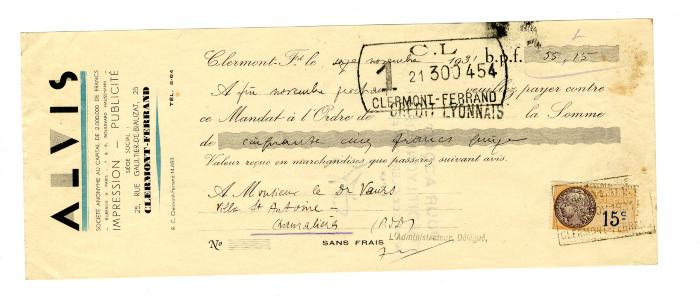 ALVIS
SOCIÉTÉ ANONYME AU CAPITAL DE 2.000.000 DE FRANCS
IMPRESSION – PUBLICITÉ
SIÈGE SOCIAL
25, RUE GAULTIER-DE-BIAUZAT, 25
CLERMONT-FERRAND
TÉL. 8-84
R. C. Clermont-Ferrand 14.683
Clermont-Fd le novembre 1931 b.p.f. 55,15
C.L
1
21 300 454
CLERMONT-FERRAND
CRÉDIT LYONNAIS
A fin novembre prochain veuillez payer contre
ce Mandat à l'Ordre de la Somme
de cinquante cinq francs quinze
Valeur reçue en marchandises que passerez suivant avis.
A Monsieur le Dr Vaurs
Villa St Antoine –
Chamalières (P.D.D)
No SANS FRAIS
L'Administrateur Délégué,
15c
CLERMONT-FERRAND